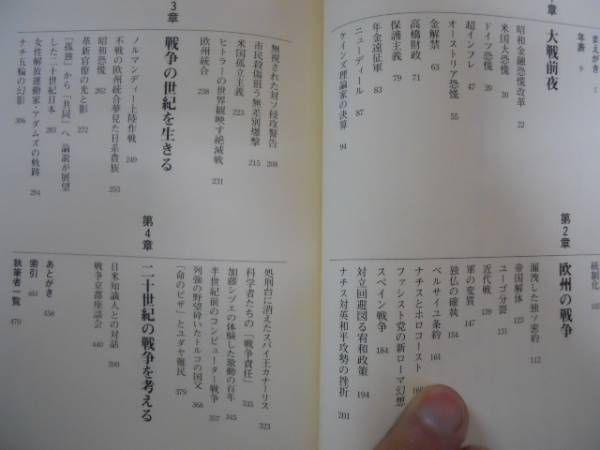 まえがき 1
年表 9
章 大戦前夜
昭和金融恐慌改革 22
米国大恐慌 30
ドイツ恐慌 39
超インフレ 47
オーストリア恐慌 55
金解禁 63
高橋財政 71
保護主義 79
年金遠征軍 83
ニューディール 87
ケインズ理論家の決算 94
統制化
第2章 欧州の戦争
漏洩した独ソ密約 112
帝国解体 123
ユーゴ分裂 131
近代戦 139
軍の変質 147
独仏の確執 154
ベルサイユ条約 161
ナチスとホロコースト
ファシスト党の新ローマ幻想
スペイン戦争 184
対立回避図る宥和政策 194
ナチス対英和平攻勢の挫折 201
3章 戦争の世紀を生きる
無視された対ソ侵攻警告 209
市民殺傷狙う無差別爆撃 215
米国孤立主義 223
ヒトラーの世界観映す絶滅戦 231
欧州統合 238
ノルマンディー上陸作戦 249
不戦の欧州統合夢見た日系貴族 253
昭和恐慌 262
革新官僚の光と影 272
「孤独」から「共同」へ 論説が展望
した二十世紀日本 283
女性解放運動家・アダムズの軌跡 294
ナチ五輪の幻影 306
第4章 二十世紀の戦争を考える
処刑台に消えたスパイ王カナーリス 323
科学者たちの「戦争責任」 335
加藤シヅエの体験した激動の百年 345
半世紀前のコンピューター戦争 357
列強の野望砕いたトルコの国父 366
「命のビザ」とユダヤ難民 379
日米知識人との対話 390
戦争京都座談会 440
あとがき 458
索引 465
執筆者一覧 470